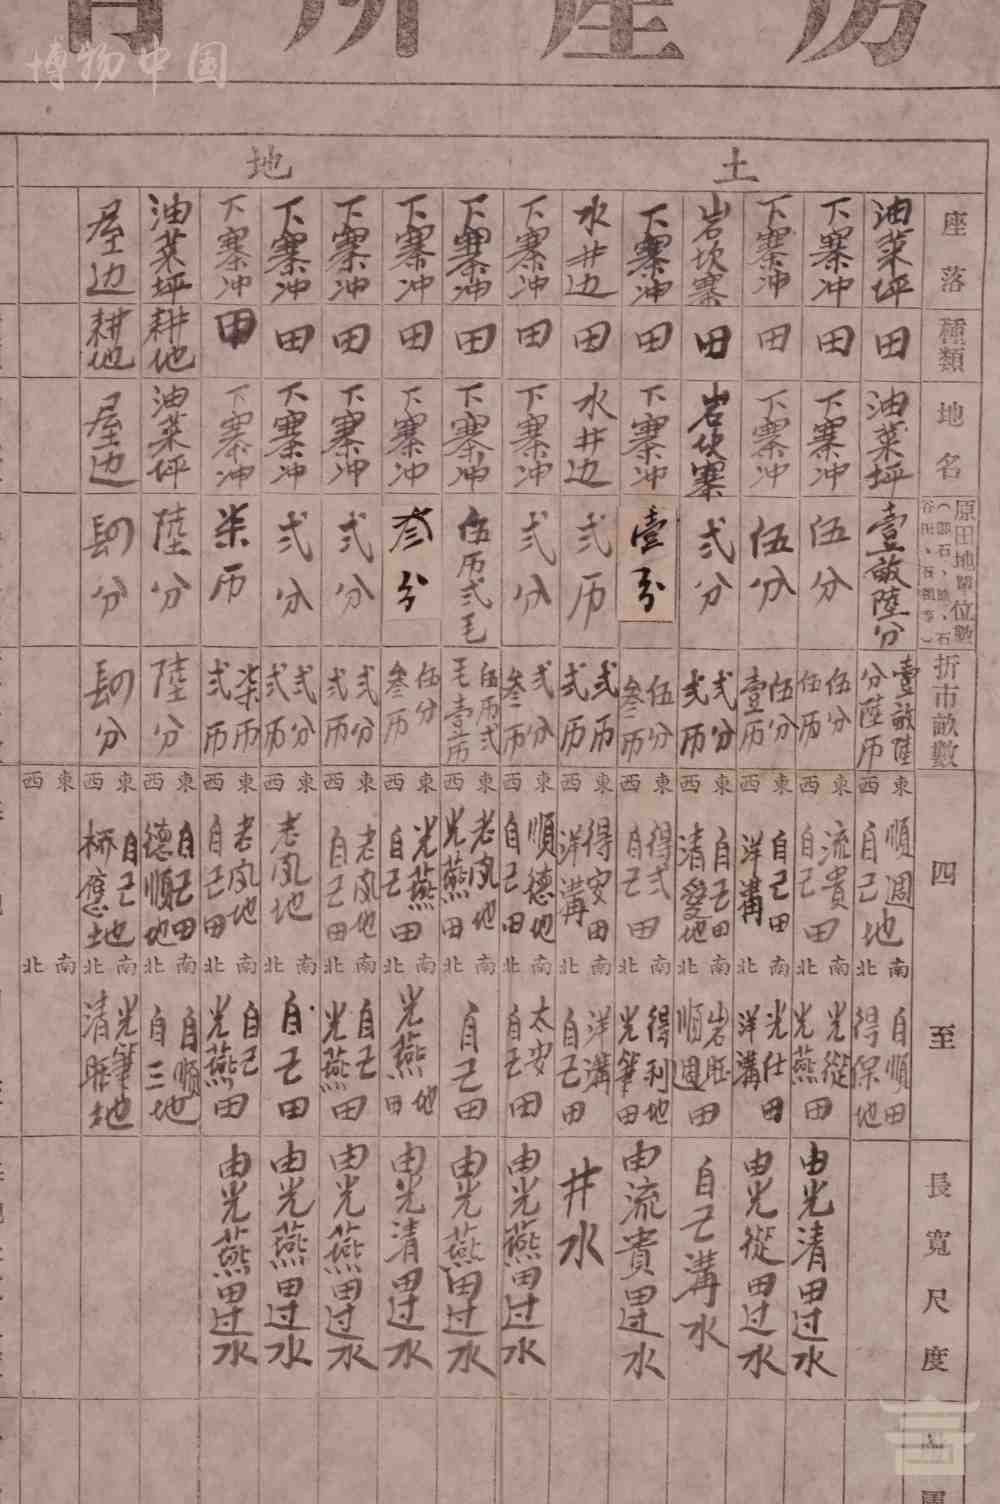 博物中国
房產所有
土地
座落 種類 地名 原田地單位數 折市畝數 四至 長寬尺度
油菜坪 田 油菜坪 壹畝陸分 壹畝陸分陸厉 東 順週 西 自己地 南 自順田 北 得保地
下寨冲 田 下寨冲 伍分 伍分伍厉 東 流貴 西 自己田 南 光從 北 光燕田 由光清田过水
下寨冲 田 下寨冲 伍分 伍分壹厉 東 自己田 西 洋溝 南 光仕田 北 洋溝 由光從田过水
岩坎寨 田 岩坎寨 弍分 弍分弍厉 東 自己田 西 清發地 南 岩旺 北 順週田 自己溝水
下寨冲 田 下寨冲 壹分 伍分叁厉 東 得弍 西 自己田 南 得利地 北 光筆田 由流貴田过水
水井边 田 水井边 弍厉 弍厉弍厉 東 得安田 西 洋溝 南 洋溝 北 自己田 井水
下寨冲 田 下寨冲 弍分 弍分叁厉 東 順德地 西 自己田 南 太安 北 自己田 由光燕田过水
下寨冲 田 下寨冲 伍厉弍毛 伍厉弍毛壹厉 東 老凨地 西 光燕田 南 北 自己田 由光燕田过水
下寨冲 田 下寨冲 叁分 伍分叁厉 東 光燕 西 自己田 南 北 光燕地田 由光清田过水
下寨冲 田 下寨冲 弍分 弍分弍厉 東 老凨地 西 自己田 南 自己 北 光燕田 由光燕田过水
下寨冲 田 下寨冲 弍分 弍分弍厉 東 西 老凨地 南 北 自己田 由光燕田过水
下寨冲 田 下寨冲 柒厉 柒厉弍厉 東 老凨地 西 自己田 南 自己 北 光燕田 由光燕田过水
油菜坪 耕地 油菜坪 陸分 陸分 東 自己田 西 德順地 南 自順地 北 自三地
屋边 耕地 屋边 分 分 東 自己地 西 桥應土 南 光筆地 北 清
東 西 南 北